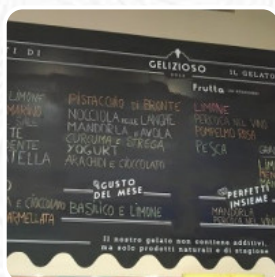 TI DI
GELIZIOSO
IL GELATO
LIMONE
SALE
TE
DENTE
TELLA
PISTACCHIO DI BRONTE
NOCCIOLA DELLE LANGHE
MANDORLA D'AVOLA
CURCUMA E STREGA
YOGURT
ARACHIDI E CIOCCOLATO
Frutta
LIMONE
PERCOCA NEL VINO
POMPELMO ROSA
PESCA
GUSTO
DEL MESE
BASILICO E LIMONE
E CIOCCOLATO
MARMELLATA
PERFETTI
INSIEME
MANDORLA
PERCOCA NEL VINO
Il nostro gelato non contiene additivi,
ma solo prodotti naturali e di stagione